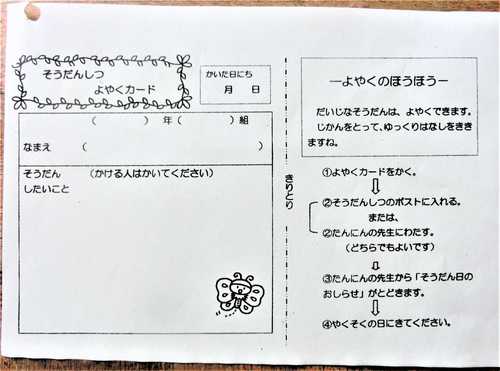 そうだんしつ
よやくカード
かいた日にち
月　日
（　　　）年（　　　）組
なまえ　（　　　　　　　）
そうだん　（かける人はかいてください）
したいこと
きりとり
―よやくのほうほう―
だいじなそうだんは、よやくできます。
じかんをとって、ゆっくりはなしをきき
ますね。
①よやくカードをかく。
⇩
②そうだんしつのポストに入れる。
または、
②たんにんの先生にわたす。
（どちらでもよいです）
⇩
③たんにんの先生から「そうだん日の
おしらせ」がとどきます。
⇩
④やくそくの日にきてください。